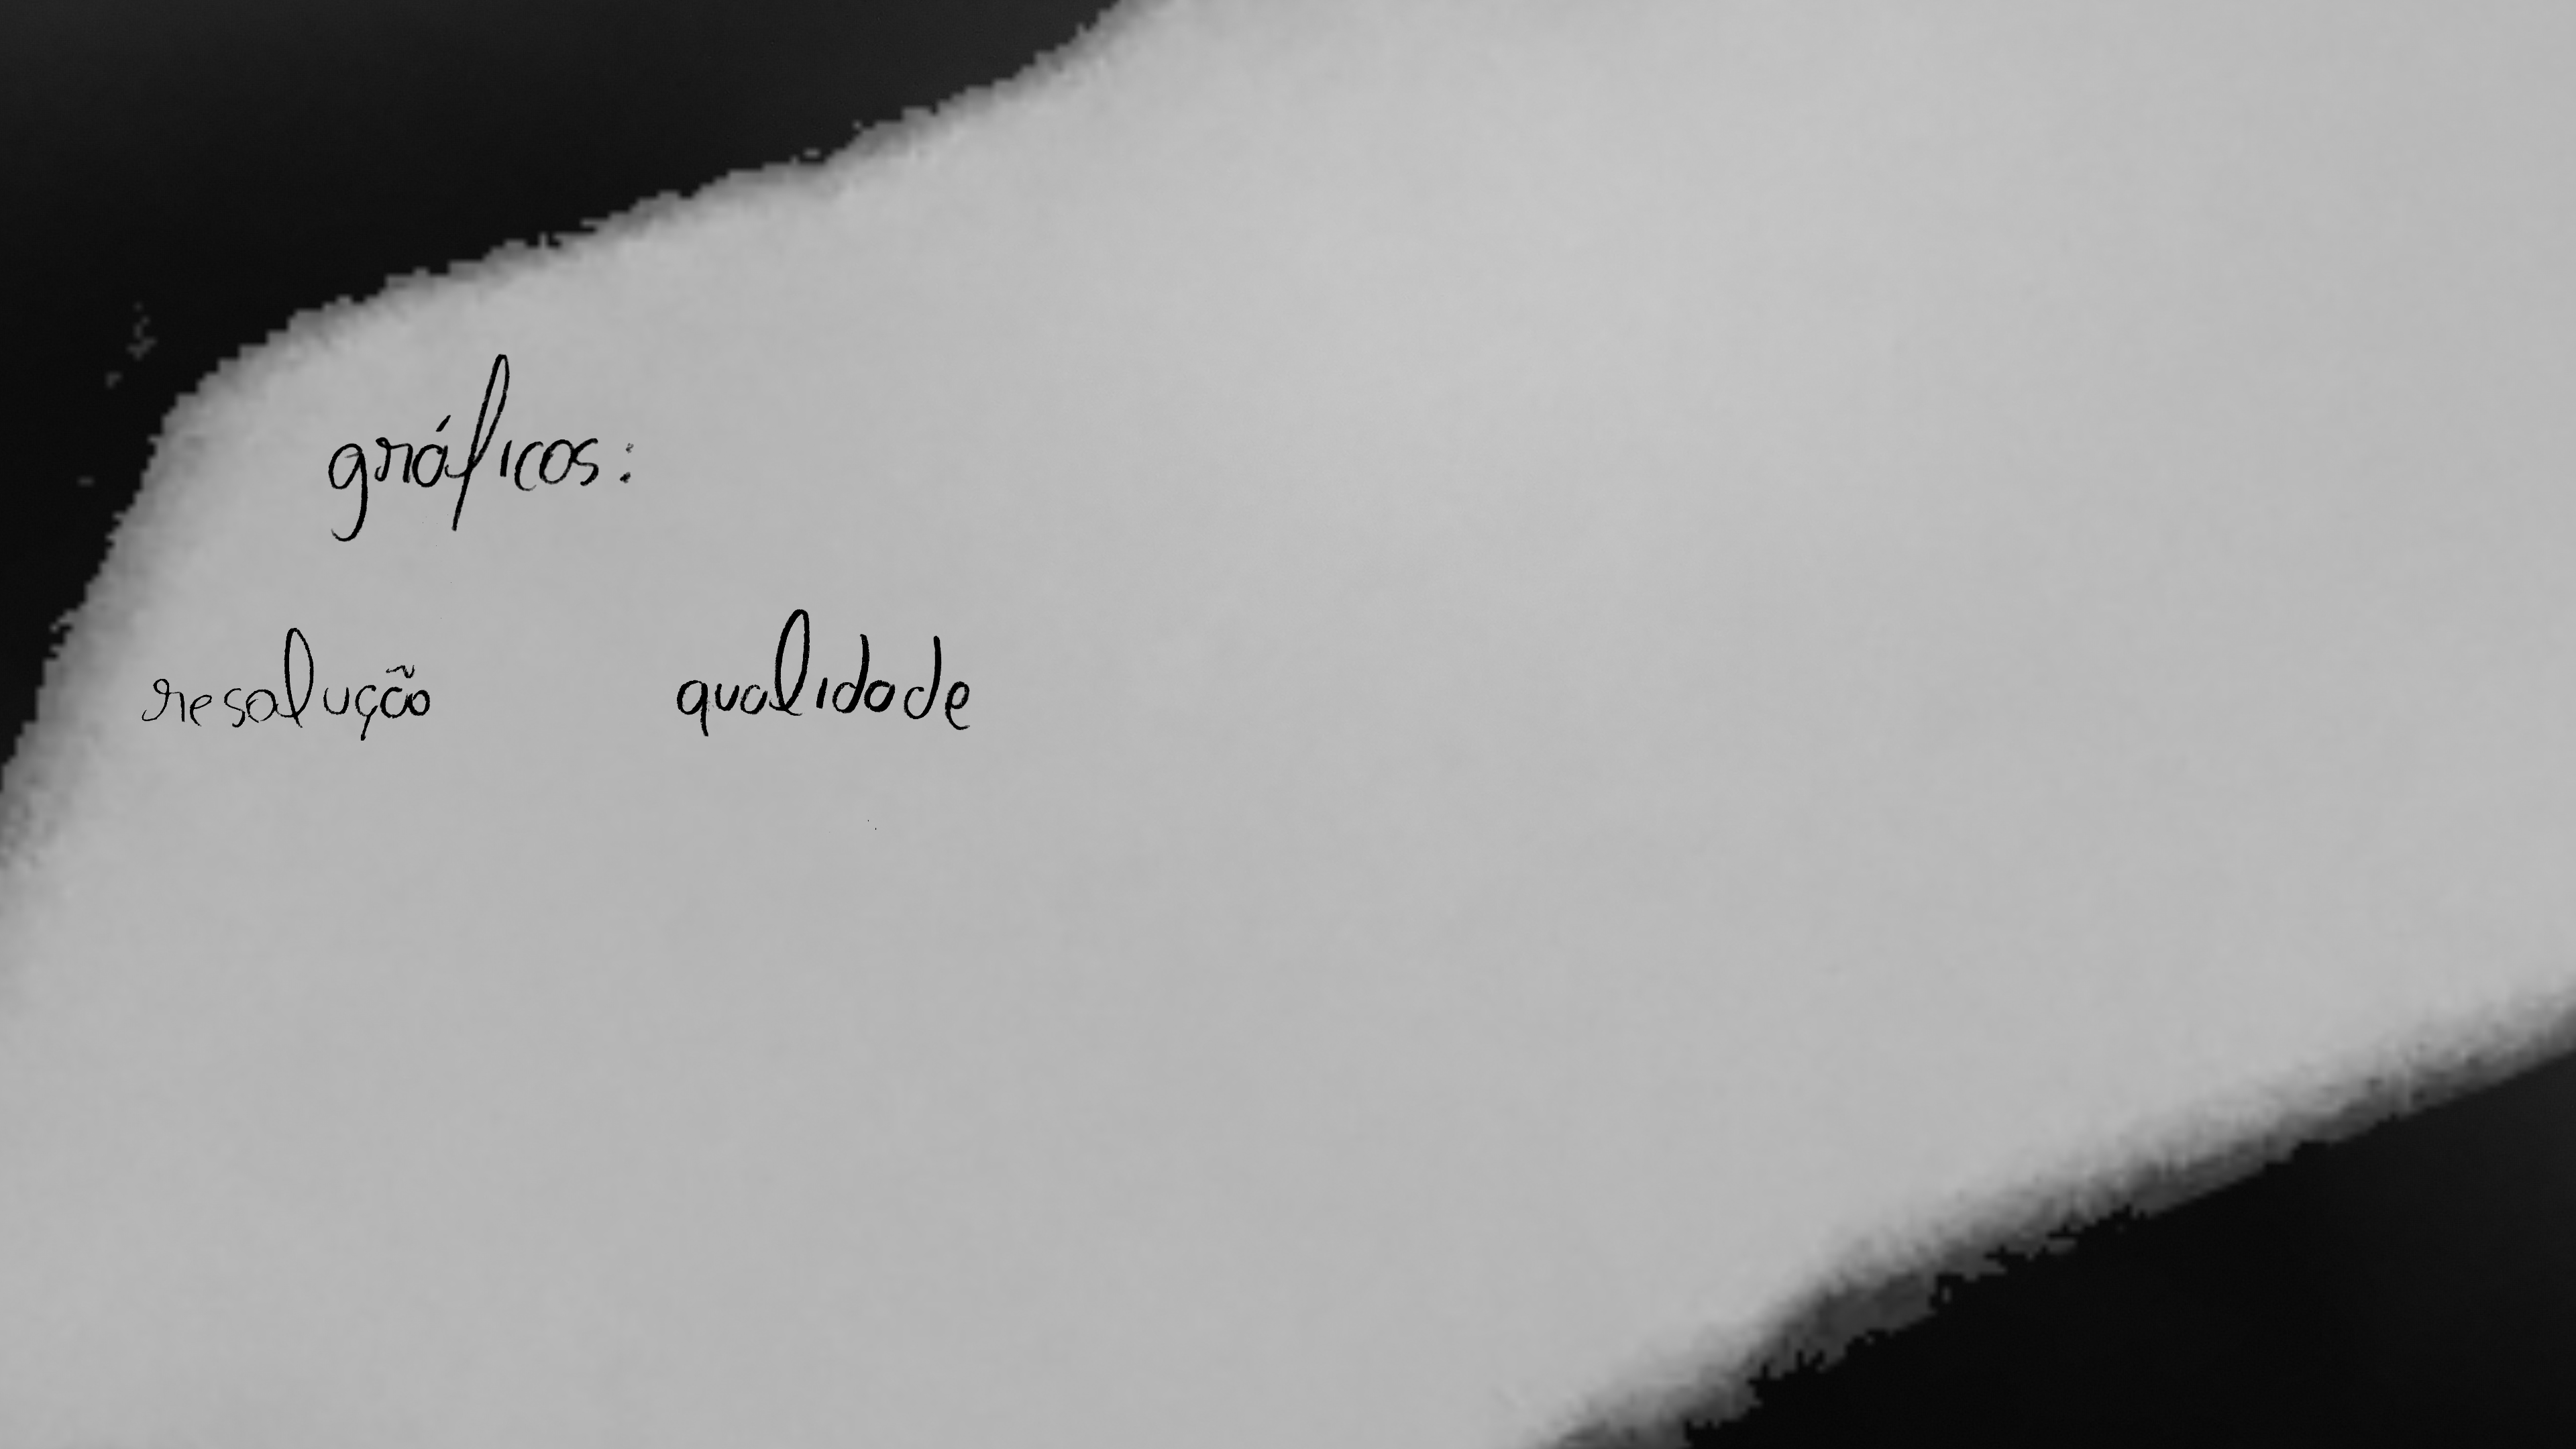 gráficos:
resolução qualidade